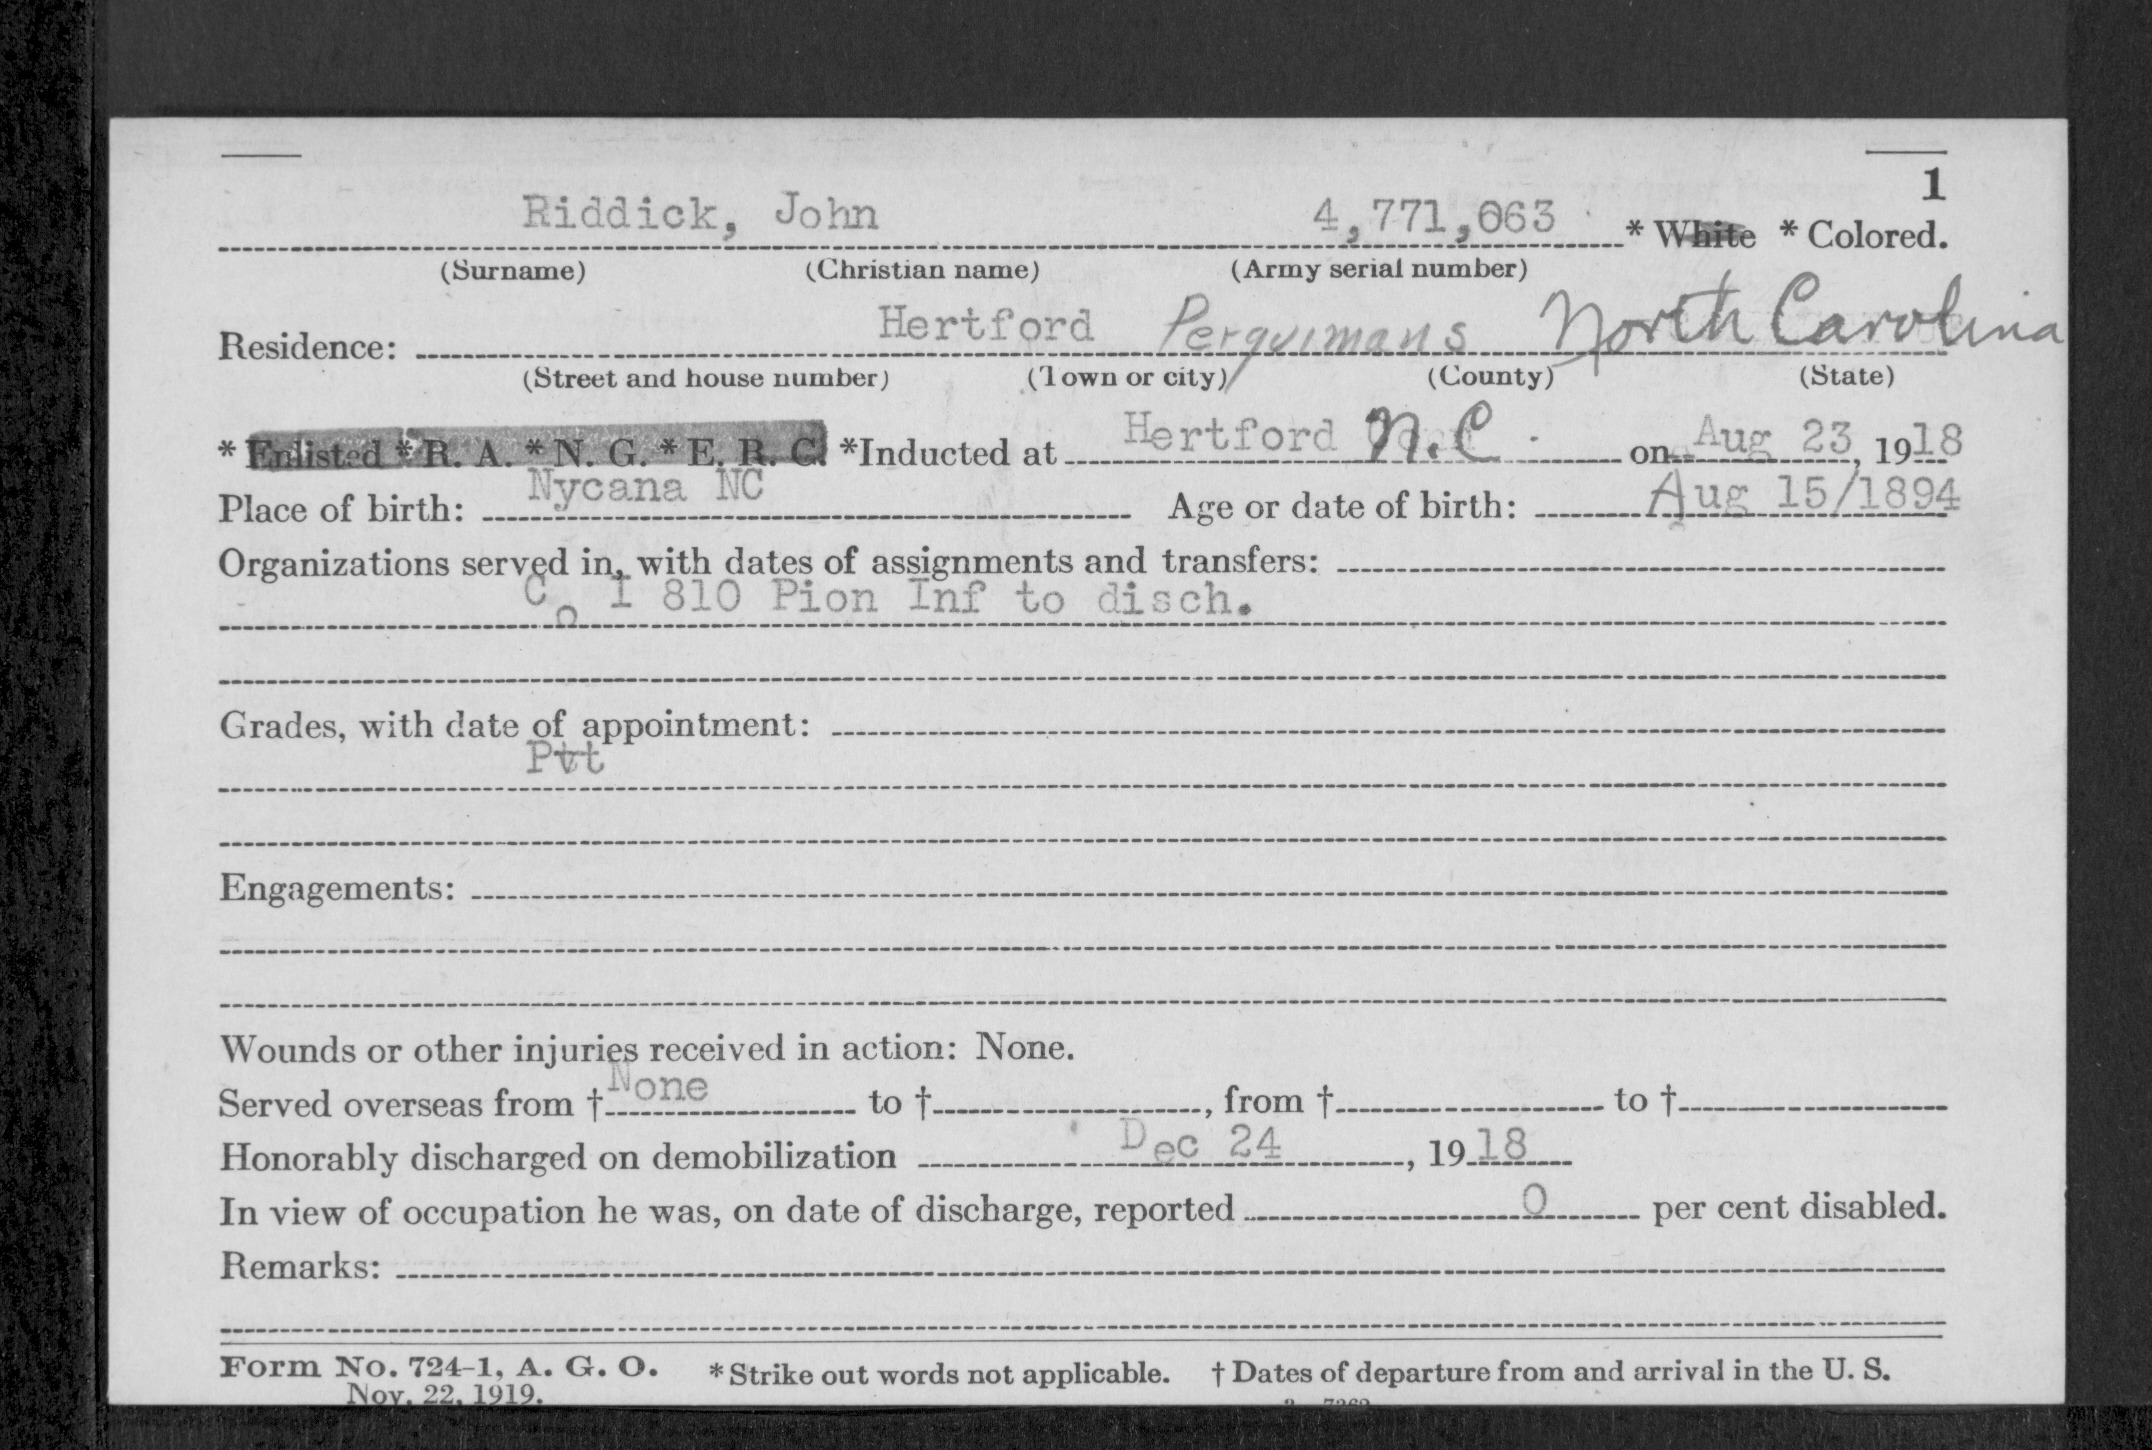 1
Riddick, John 4,771,063 * White * Colored.
(Surname) (Christian name) (Army serial number)
Residence: Hertford Perquimans North Carolina
(Street and house number) (Town or city) (County) (State)
* Enlisted * R. A. * N. G. * E. R. C. *Inducted at Hertford N.C on Aug 23, 1918
Place of birth: Nycana NC Age or date of birth: Aug 15/1894
Organizations served in, with dates of assignments and transfers:
Co I 810 Pion Inf to disch.
Grades, with date of appointment:
Pvt
Engagements:
Wounds or other injuries received in action: None.
Served overseas from † None to †, from † to †
Honorably discharged on demobilization Dec 24, 1918
In view of occupation he was, on date of discharge, reported 0 per cent disabled.
Remarks:
Form No. 724-1, A. G. O. * Strike out words not applicable. † Dates of departure from and arrival in the U. S.
Nov. 22, 1919.